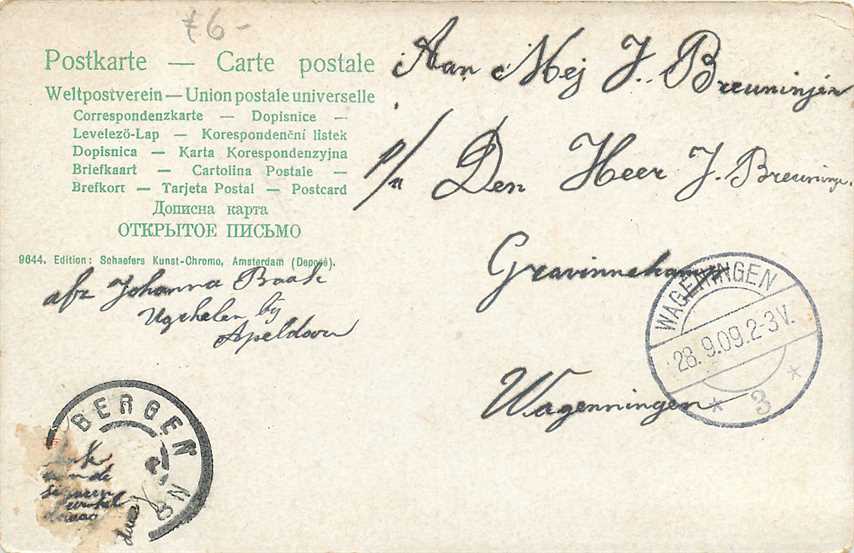 £6-
Postkarte — Carte postale
Weltpostverein — Union postale universelle
Correspondenzkarte — Dopisnice —
Levelező-Lap — Korespondenční listek
Dopisnica — Karta Korespondenzyjna
Briefkaart — Cartolina Postale —
Brefkort — Tarjeta Postal — Postcard
Дописна карта
ОТКРЫТОЕ ПИСЬМО
9644. Edition: Schaefers Kunst-Chromo, Amsterdam (Deposé).
afz Johanna Baak
Ugchelen by
Apeldoorn
Aan Mej J. Breuningen
p/a Den Heer J. Breuninge
Gravinnekamp
Wagenningen
WAGENINGEN
28.9.09.2-3V.
* 3 *
BERGEN